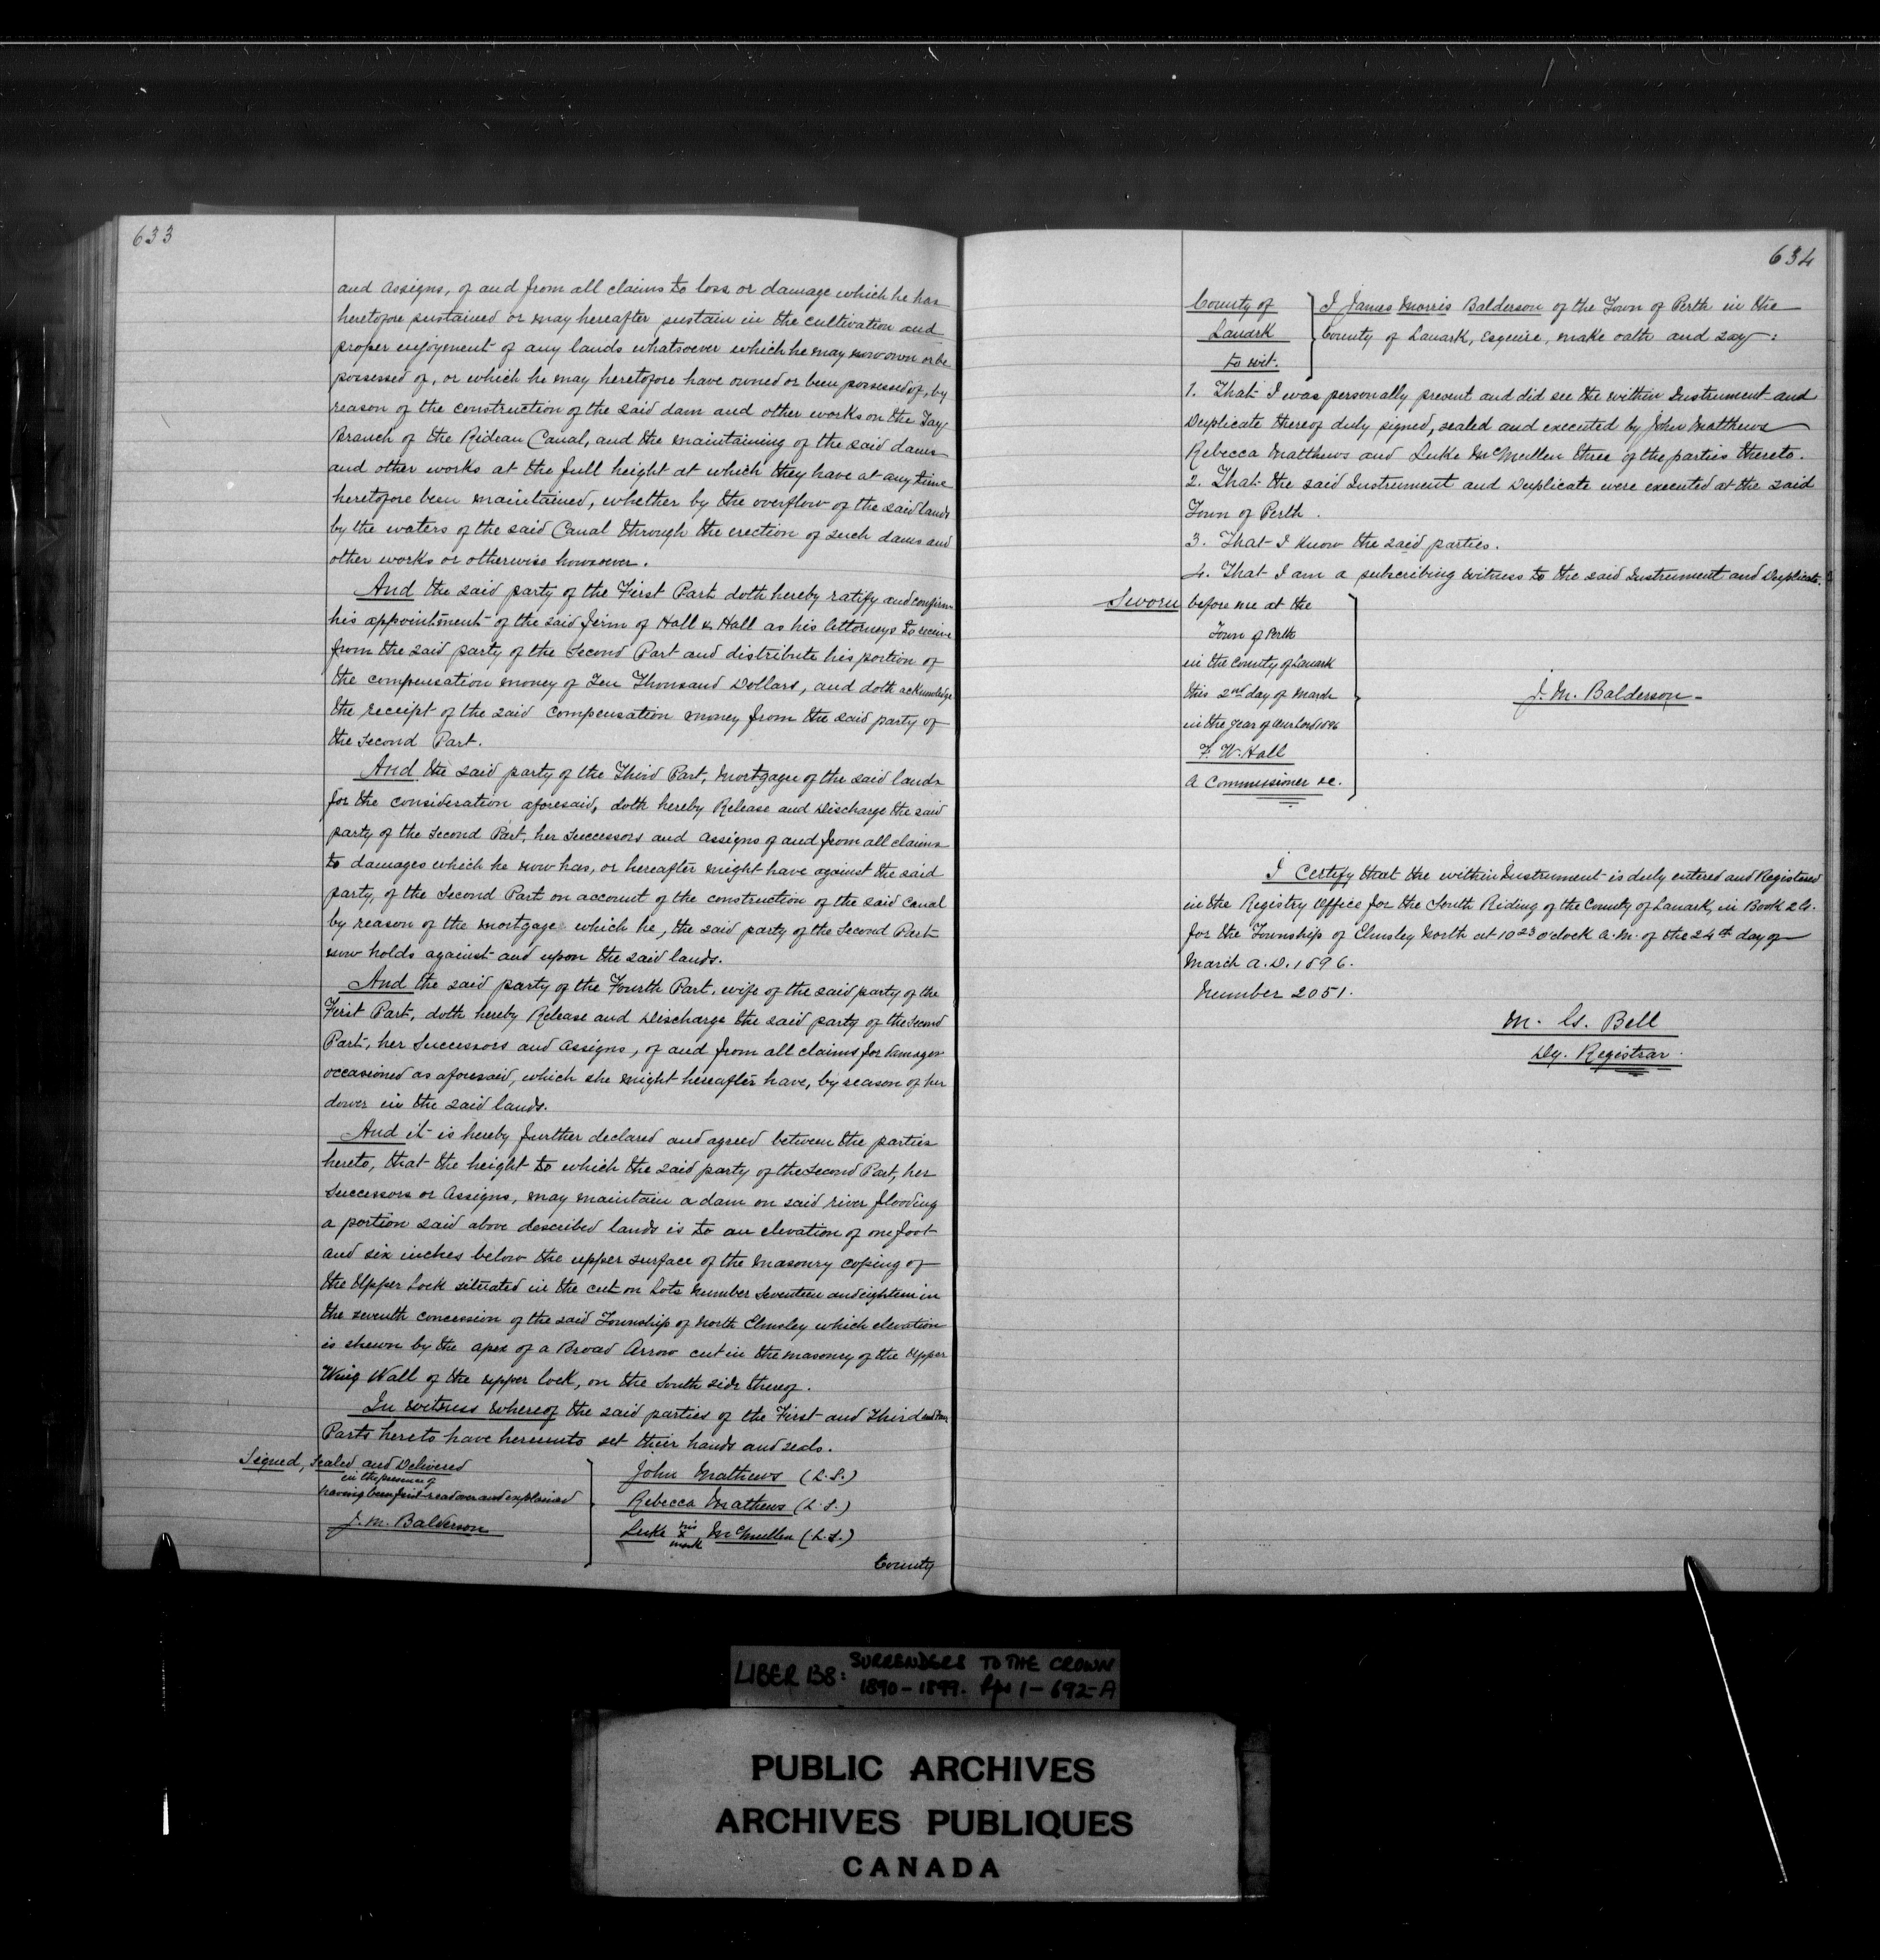 633
and Assigns, of and from all claims to loss or damage which he has
heretofore sustained or may hereafter sustain in the cultivation and
proper enjoyment of any lands whatsoever which he may now own or be
possessed of, or which he may heretofore have owned or been possessed of, by
reason of the construction of the said dam and other works on the Tay
Branch of the Rideau Canal, and the maintaining of the said dams
and other works at the full height at which they have at any time
heretofore been maintained, whether by the overflow of the said lands
by the waters of the said Canal through the erection of such dams and
other works or otherwise howsoever.
And the said party of the First Part doth hereby ratify and confirm
his appointment of the said firm of Hall & Hall as his Attorneys to receive
from the said party of the Second Part and distribute his portion of
the compensation money of Ten Thousand Dollars, and doth acknowledge
the receipt of the said compensation money from the said party of
the Second Part.
And the said party of the Third Part, Mortgagee of the said lands
for the consideration aforesaid, doth hereby Release and Discharge the said
party of the Second Part, her Successors and Assigns of and from all claims
to damages which he now has, or hereafter might have against the said
party, of the Second Part on account of the construction of the said Canal
by reason of the mortgage which he, the said party of the Second Part
now holds against and upon the said lands.
And the said party of the Fourth Part, wife of the said party of the
First Part, doth hereby Release and Discharge the said party of the Second
Part, her Successors and Assigns, of and from all claims for damages
occasioned as aforesaid, which she might hereafter have, by reason of her
dower in the said lands.
And it is hereby further declared and agreed between the parties
hereto, that the height to which the said party of the Second Part, her
Successors or Assigns, may maintain a dam on said river flooding
a portion said above described lands is to an elevation of one foot
and six inches below the upper surface of the Masonry coping of
the Upper Lock situated in the cut on Lots Number Seventeen and eighteen in
the seventh concession of the said Township of North Elmsley which elevation
is shewn by the apex of a Broad Arrow cut in the masonry of the Upper
Wing Wall of the upper lock, on the South side thereof.
In witness whereof the said parties of the First and Third
Parts hereto have hereunto set their hands and seals.
Signed, Sealed and Delivered
in the presence of
having been first read over and explained
J. M. Balderson
John Mathews (L.S.)
Rebecca Mathews (L.S.)
Luke his x mark McMullen (L.S.)
County
634
County of
Lanark
to wit.
I James Morris Balderson of the Town of Perth in the
County of Lanark, Esquire, make oath and say:
1. That I was personally present and did see the within Instrument and
Duplicate thereof duly signed, sealed and executed by John Matthews
Rebecca Matthews and Luke McMullen three of the parties thereto.
2. That the said Instrument and Duplicate were executed at the said
Town of Perth.
3. That I know the said parties.
4. That I am a subscribing witness to the said Instrument and Duplicate.
Sworn before me at the
Town of Perth
in the County of Lanark
this 2nd day of March
in the year of Our Lord 1896
F. W. Hall
A Commissioner &c.
J. M. Balderson
I Certify that the within Instrument is duly entered and Registered
in the Registry Office for the South Riding of the County of Lanark, in Book
for the Township of Elmsley North at 10 23 o'clock A.M. of the 24th day of
March A.D. 1896.
Number 2051.
M. Bell
Dy. Registrar.
LIBER 138: SURRENDERS TO THE CROWN
1890-1899. Pgs 1-692-A
PUBLIC ARCHIVES
ARCHIVES PUBLIQUES
CANADA